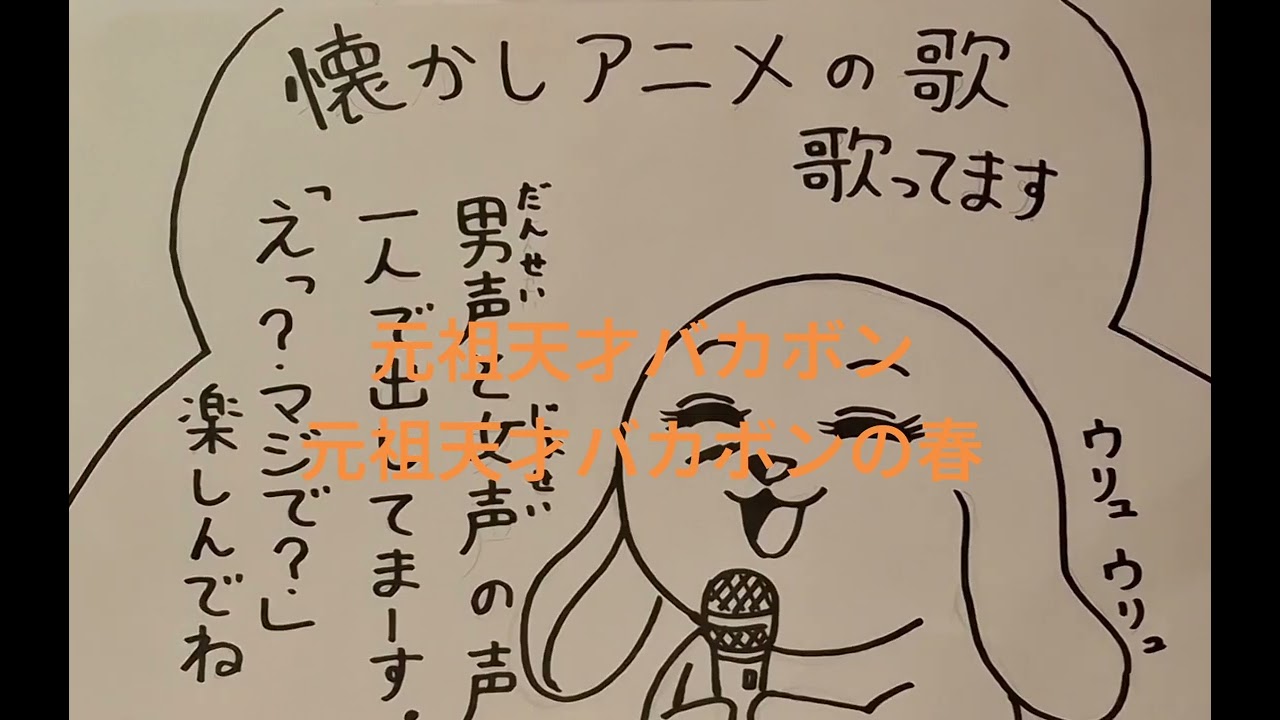 懐かしアニメの歌
歌ってます
男声と女声の声
だんせい
じょせい
一人で出してまーす.
「えっ?マジで?」
楽しんでね
元祖天才バカボン
元祖天才バカボンの春
ウリュ
ウリュ